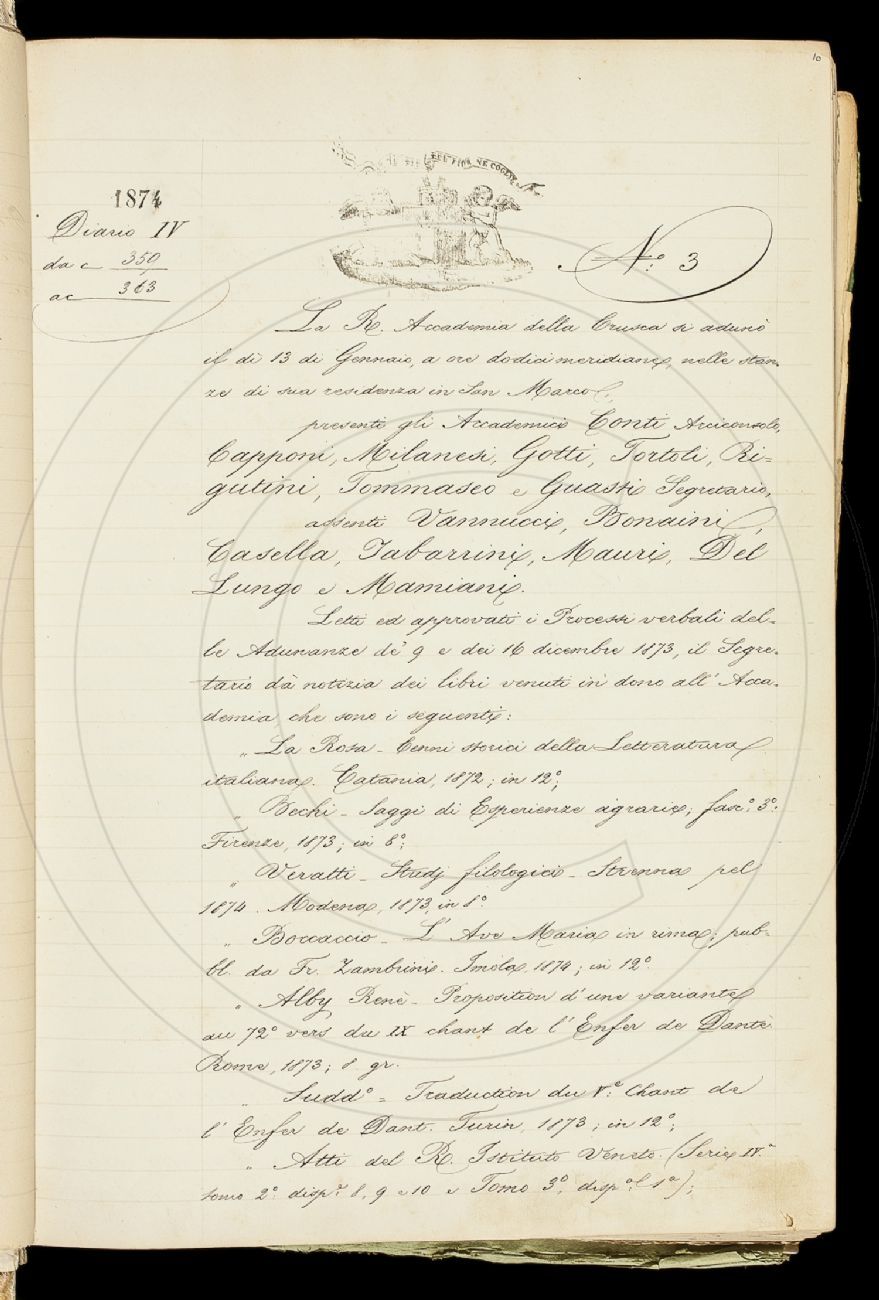 10
IL PIÙ BEL FIOR NE COGLIE
1874
Diario IV
da c 350
a c 363
N.° 3
La R. Accademia della Crusca si adunò
il dì 13 di Gennaio, a ore dodici meridiane, nelle stan-
ze di sua residenza in San Marco,
presenti gli Accademici Conti Arciconsolo,
Capponi, Milanesi, Gotti, Tortoli, Ri=
gutini, Tommaseo e Guasti Segretario,
assenti Vannucci, Bonaini,
Casella, Tabarrini, Mauri, Del
Lungo e Mamiani.
Letti ed approvati i Processi verbali del-
le Adunanze de' 9 e dei 16 dicembre 1873, il Segre-
tario dà notizia dei libri venuti in dono all'Acca-
demia, che sono i seguenti:
„ La Rosa - Cenni storici della Letteratura
italiana. Catania, 1872; in 12°;
„ Bechi - Saggi di Esperienze agrarie; fasc.° 3°:
Firenze, 1873; in 8°;
„ Veratti - Studj filologici - Strenna pel
1874. Modena, 1873, in 8°.
„ Boccaccio - L'Ave Maria in rima; pub-
bl. da Fr. Zambrini. Imola, 1874; in 12°.
„ Alby Renè - Proposition d'une variante
au 72° vers du IX chant de l'Enfer de Dante
Rome, 1873; 8 gr.
„ Sudd° - Traduction du V.e Chant de
l'Enfer de Dant. Turin, 1873; in 12°;
„ Atti del R. Istituto Veneto. (Serie IV.a
tomo 2° disp.e 8, 9 e 10 e Tomo 3°, disp.a 1a);